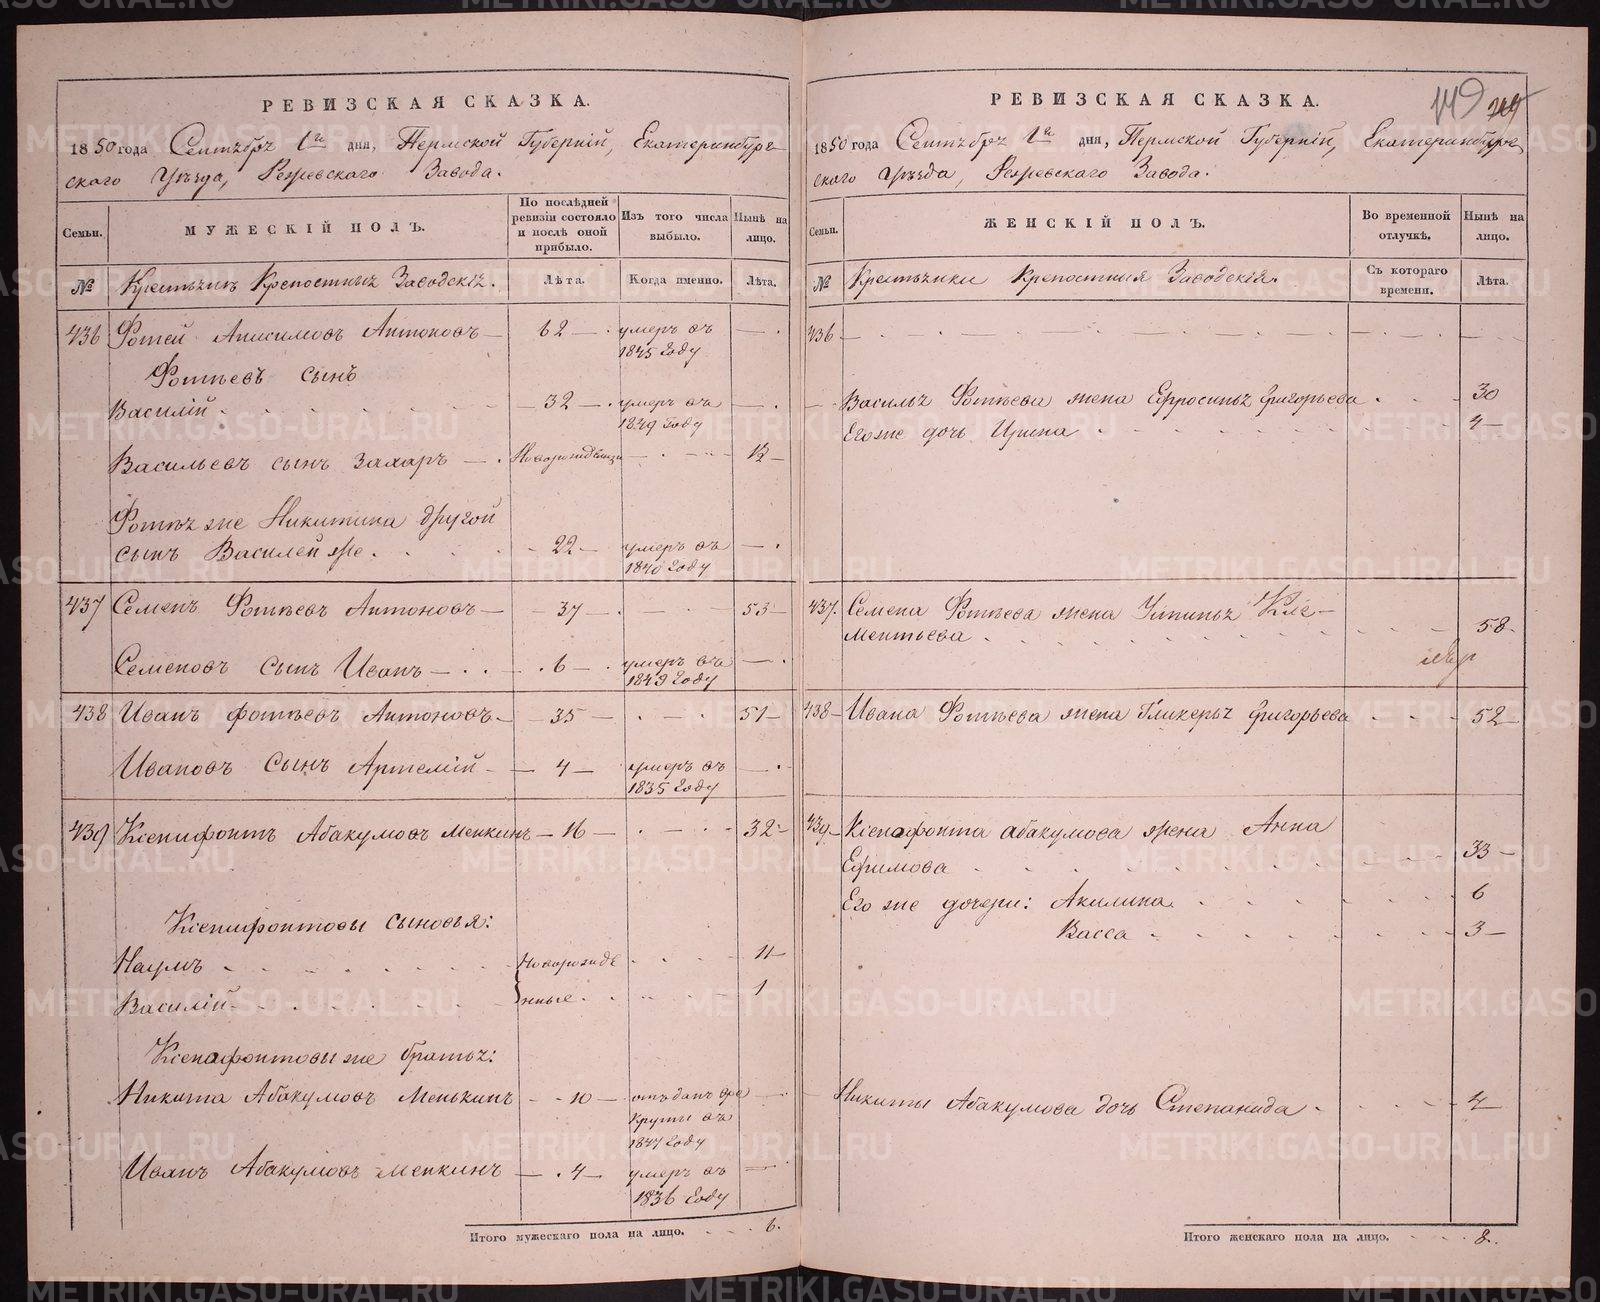 РЕВИЗСКАЯ СКАЗКА.
1850 года Сентября 1го дня, Пермской Губерніи, Екатеринбург-
скаго Уѣзда, Режевскаго Завода.
Семьи.
МУЖЕСКІЙ ПОЛЪ.
По послѣдней ревизіи состояло и послѣ оной прибыло.
Изъ того числа выбыло.
Нынѣ на лицо.
№
Крестьянъ Крепостныхъ Заводскихъ.
Лѣта.
Когда именно.
Лѣта.
436 Фотей Анисимовъ Антоновъ — 62 — умеръ въ
1845 году
Фотѣевъ сынъ
Василій 32 — умеръ въ
1849 году
Васильевъ сынъ Захаръ — Новорожденный 12 —
Фотѣя же Никитина другой
сынъ Василей же. 22 — умеръ въ
1840 году
437 Семенъ Фотѣевъ Антоновъ — 37 — 53 —
Семеновъ сынъ Иванъ — 6 — умеръ въ
1849 году
438 Иванъ Фотѣевъ Антоновъ — 35 — 51 —
Ивановъ сынъ Артемій — 4 — умеръ въ
1835 году
439 Ксенифонтъ Абакумовъ Менкинъ — 16 — 32 —
Ксенифонтовы сыновья:
Наумъ Новорожде 11 —
Василій нные 1
Ксенафонтовы же братья:
Никита Абакумовъ Менькинъ — 10 — отъданъ в ре
круты въ
1847 году
Иванъ Абакумовъ Менкинъ — 4 — умеръ въ
1836 году
Итого мужескаго пола на лицо. 6.
РЕВИЗСКАЯ СКАЗКА.
149
1850 года Сентября 1го дня, Пермской Губерніи, Екатеринбург-
скаго Уѣзда, Режевскаго Завода.
Семьи.
ЖЕНСКІЙ ПОЛЪ.
Во временной отлучкѣ.
Нынѣ на лицо.
№
Крестьянки Крепостныя Заводскія.
Съ котораго времени.
Лѣта.
436 —
Василья Фотѣева жена Ефросинья Григорьева 30
Его же дочь Ирина 4 —
437. Семена Фотѣева жена Устинья Кле-
ментьева 58
438 — Ивана Фотѣева жена Гликерья Григорьева 52
439 — Ксенофонта Абакумова жена Анна
Ефимова 33 —
Его же дочери: Акилина 6
Васса 3 —
Никиты Абакумова дочь Степанида 4
Итого женскаго пола на лицо. 8.
METRIKI.GASO-URAL.RU